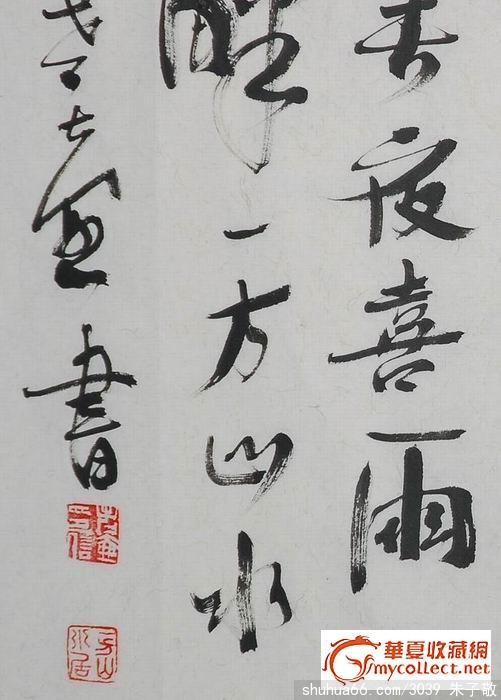 春夜喜雨
醉一方山水
書
方山
水居
華夏收藏網
mycollect.net
shuhua66.com/3039 朱子敬